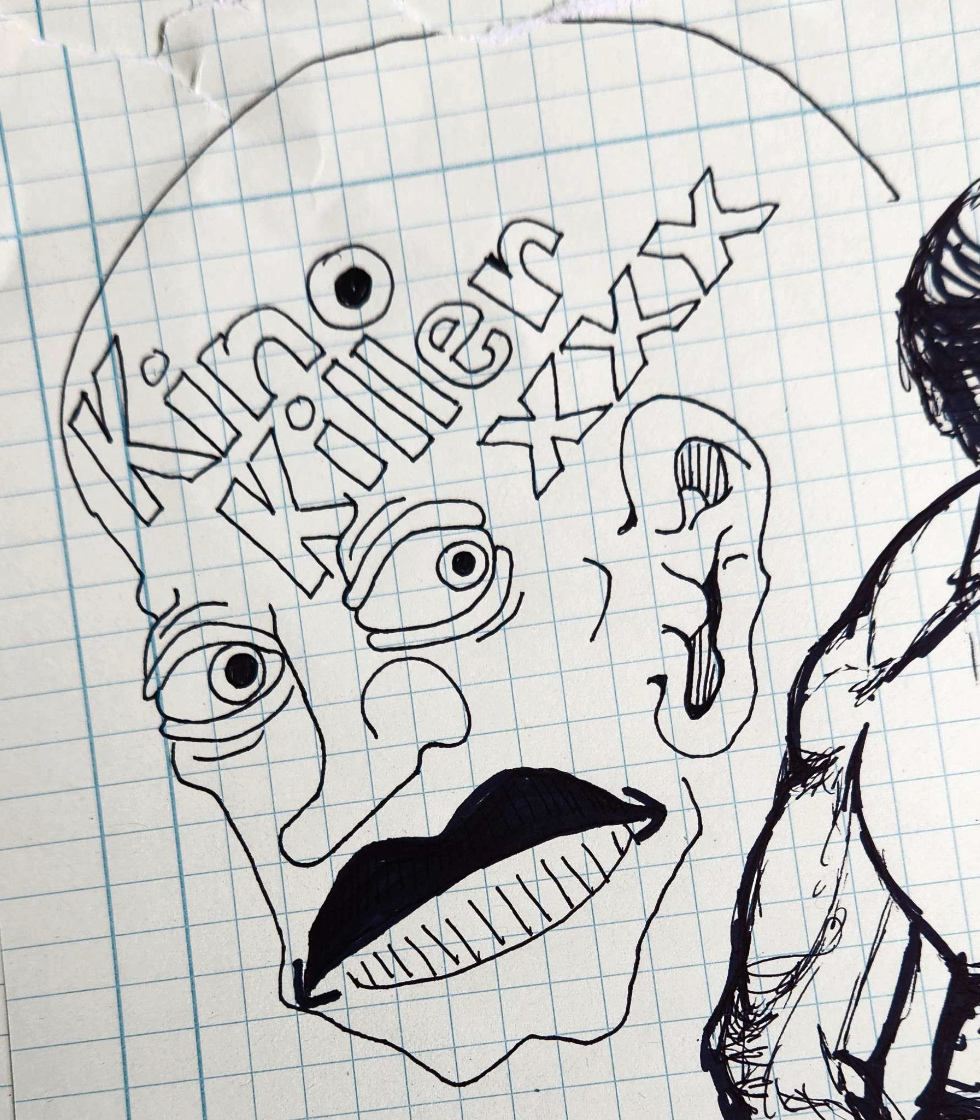 Kino
Killer
XXX